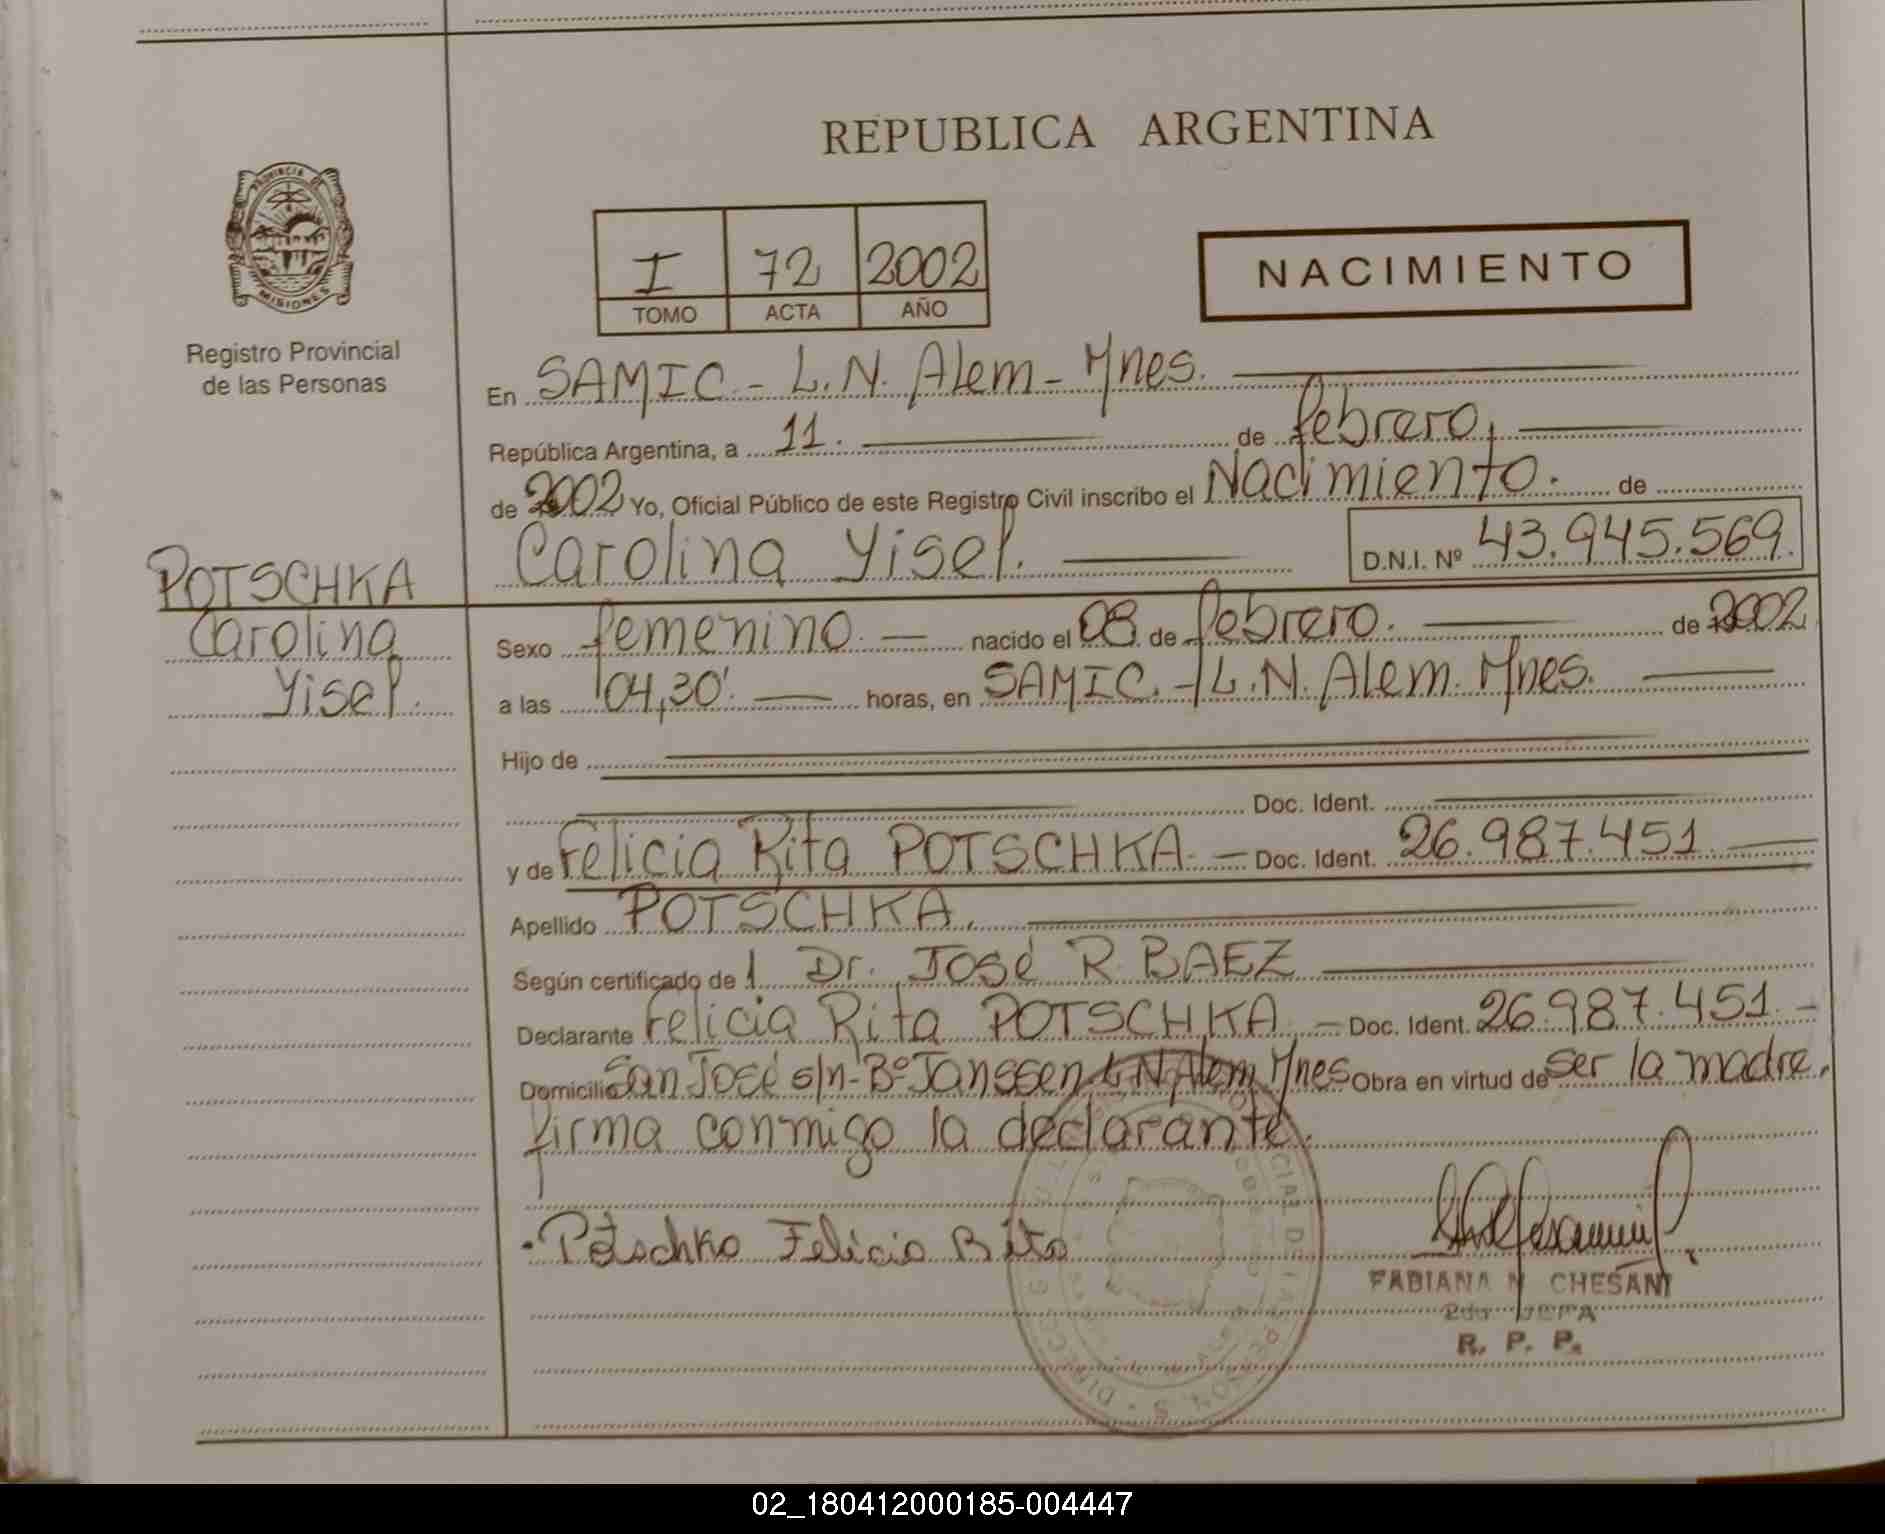 REPUBLICA ARGENTINA
PROVINCIA DE
MISIONES
Registro Provincial
de las Personas
I 72 2002
TOMO ACTA AÑO
NACIMIENTO
En SAMIC - L.N. Alem - Mnes.
República Argentina, a 11. de febrero,
de 2002 Yo, Oficial Público de este Registro Civil inscribo el Nacimiento. de
Carolina Yisel. D.N.I. Nº 43.945.569.
POTSCHKA
Carolina
Yisel.
Sexo femenino. nacido el 08 de febrero. de 2002
a las 04,30'. horas, en SAMIC. - L.N. Alem. Mnes.
Hijo de
Doc. Ident.
y de Felicia Rita POTSCHKA. - Doc. Ident. 26.987.451.
Apellido POTSCHKA.
Según certificado de 1 Dr. José R. BAEZ
Declarante Felicia Rita POTSCHKA - Doc. Ident. 26.987.451. -
Domicilio San José s/n - Bº Janssen L.N. Alem Mnes Obra en virtud de ser la madre,
firma conmigo la declarante.
Potschka Felicia Rita
FABIANA N CHESANI
JEFA
R. P. P.
02_180412000185-004447